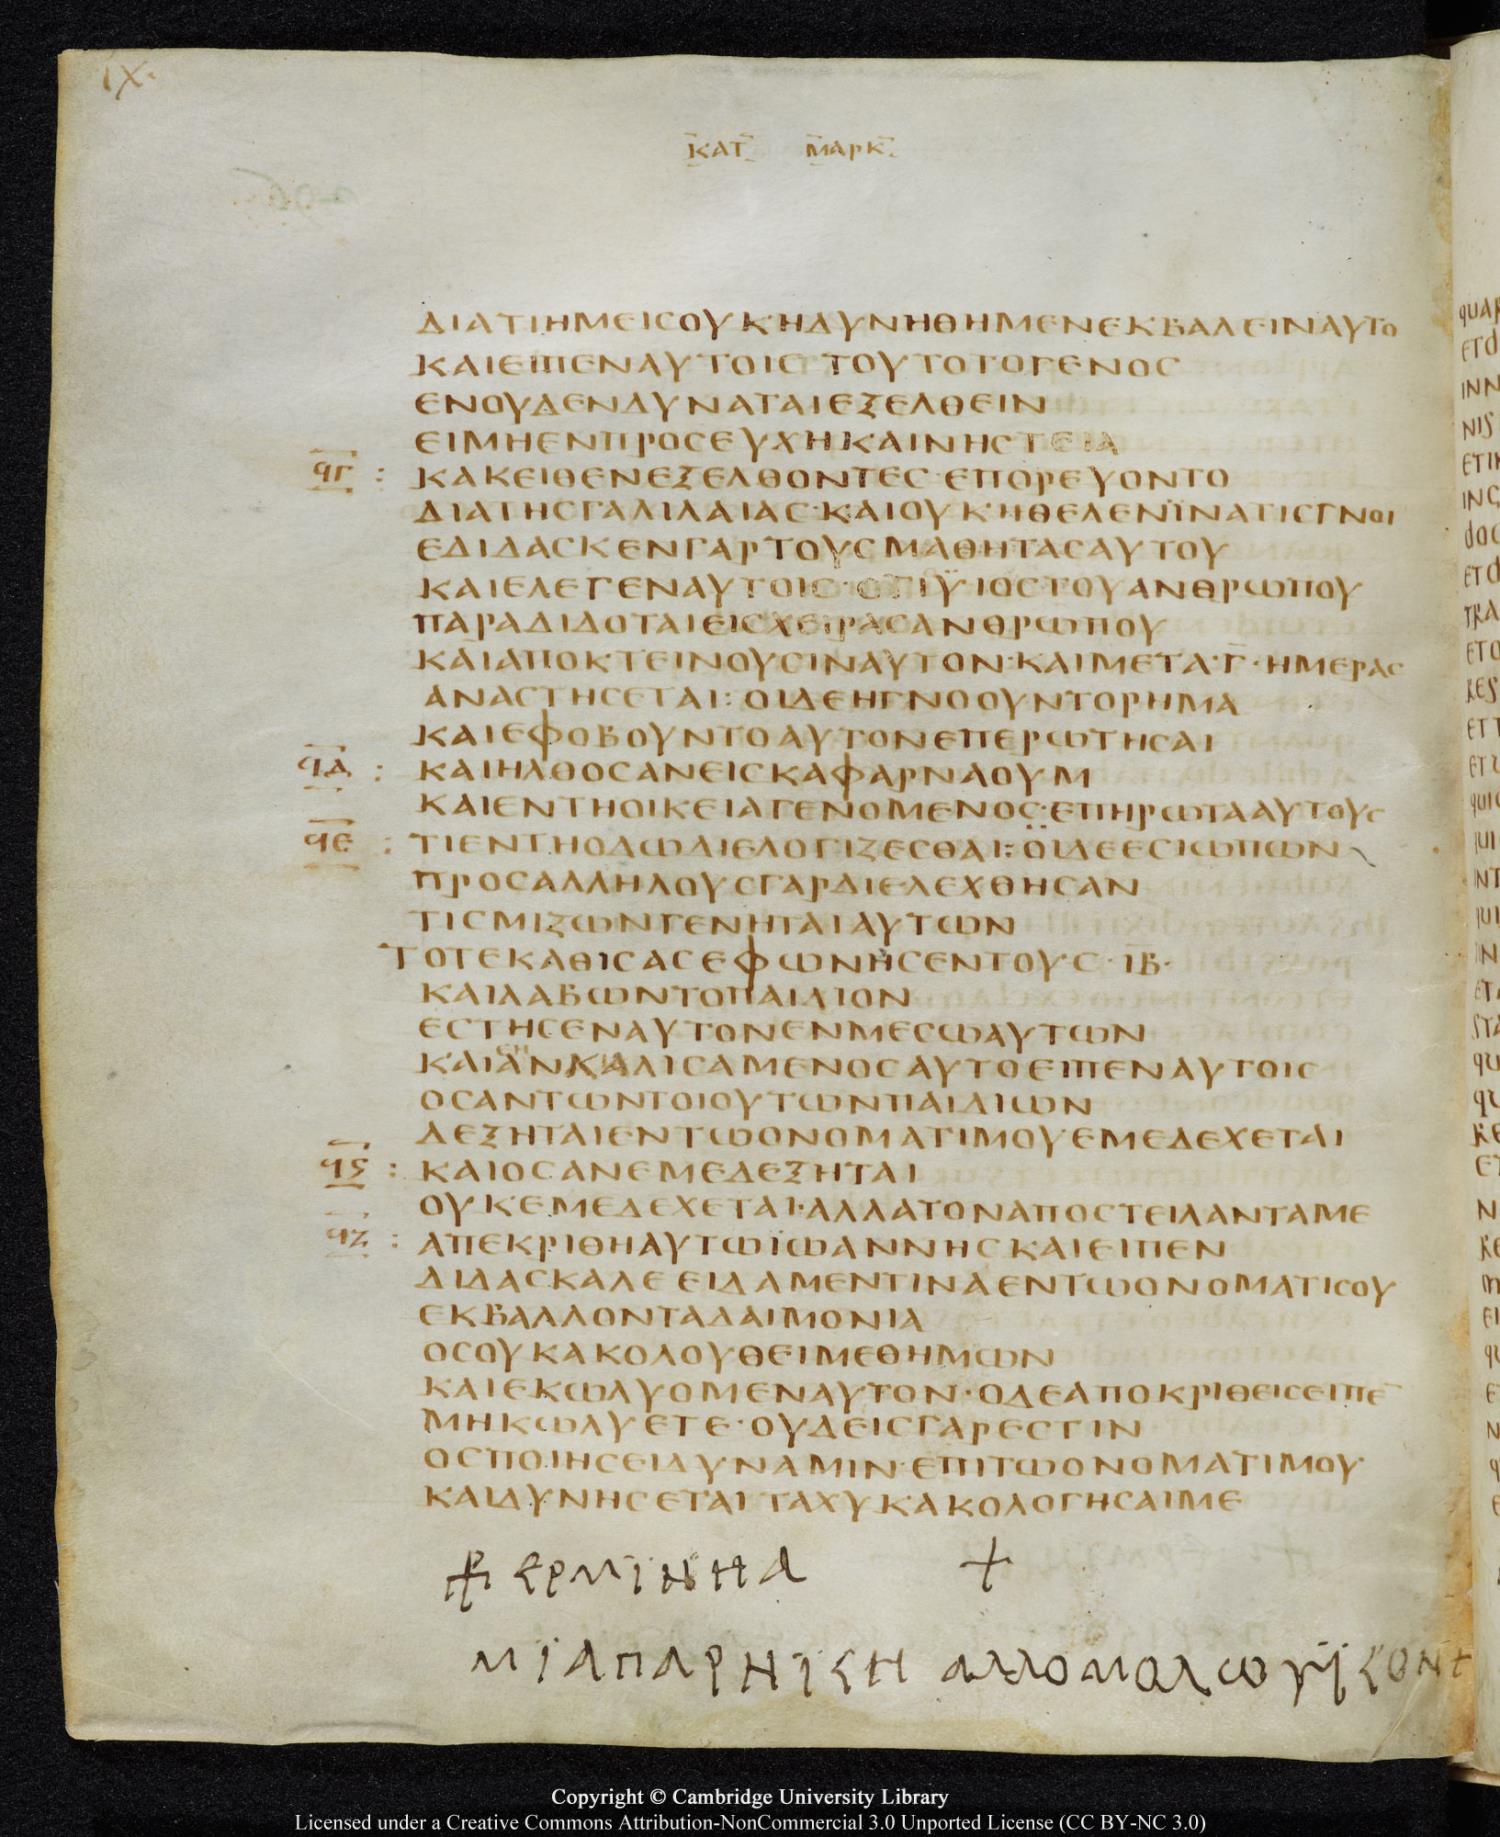 IX.
ΚΑΤ ΜΑΡΚ
ΔΙΑΤΙΗΜΕΙϹΟΥΚΗΔΥΝΗΘΗΜΕΝΕΚΒΑΛΕΙΝΑΥΤΟ
ΚΑΙΕΙΠΕΝΑΥΤΟΙϹ ΤΟΥΤΟΤΟΓΕΝΟϹ
ΕΝΟΥΔΕΝΔΥΝΑΤΑΙΕΞΕΛΘΕΙΝ
ΕΙΜΗΕΝΠΡΟϹΕΥΧΗΚΑΙΝΗϹΤΕΙΑ
ϥΓ : ΚΑΚΕΙΘΕΝΕΞΕΛΘΟΝΤΕϹ·ΕΠΟΡΕΥΟΝΤΟ
ΔΙΑΤΗϹΓΑΛΙΛΑΙΑϹ·ΚΑΙΟΥΚΗΘΕΛΕΝΪΝΑΤΙϹΓΝΟΙ
ΕΔΙΔΑϹΚΕΝΓΑΡΤΟΥϹΜΑΘΗΤΑϹΑΥΤΟΥ
ΚΑΙΕΛΕΓΕΝΑΥΤΟΙϹ·ΟΤΙΫΙΟϹΤΟΥΑΝΘΡΩΠΟΥ
ΠΑΡΑΔΙΔΟΤΑΙΕΙϹΧΕΙΡΑϹΑΝΘΡΩΠΟΥ
ΚΑΙΑΠΟΚΤΕΙΝΟΥϹΙΝΑΥΤΟΝ·ΚΑΙΜΕΤΑ·Γ̅·ΗΜΕΡΑϹ
ΑΝΑϹΤΗϹΕΤΑΙ: ΟΙΔΕΗΓΝΟΟΥΝΤΟΡΗΜΑ
ΚΑΙΕΦΟΒΟΥΝΤΟΑΥΤΟΝΕΠΕΡΩΤΗϹΑΙ
ϥΔ : ΚΑΙΗΛΘΟϹΑΝΕΙϹΚΑΦΑΡΝΑΟΥΜ
ΚΑΙΕΝΤΗΟΙΚΕΙΑΓΕΝΟΜΕΝΟϹ·ΕΠΗΡΩΤΑΑΥΤΟΥϹ
ϥΕ : ΤΙΕΝΤΗΟΔΩΔΙΕΛΟΓΙΖΕϹΘΑΙ: ΟΪΔΕΕϹΙΩΠΩΝ
ΠΡΟϹΑΛΛΗΛΟΥϹΓΑΡΔΙΕΛΕΧΘΗϹΑΝ
ΤΙϹΜΙΖΩΝΓΕΝΗΤΑΙΑΥΤΩΝ
ΤΟΤΕΚΑΘΙϹΑϹΕΦΩΝΗϹΕΝΤΟΥϹ·ΙΒ·
ΚΑΙΛΑΒΩΝΤΟΠΑΙΔΙΟΝ
ΕϹΤΗϹΕΝΑΥΤΟΝΕΝΜΕϹΩΑΥΤΩΝ
ΚΑΙΑΝΚΑΛΙϹΑΜΕΝΟϹΑΥΤΟΕΙΠΕΝΑΥΤΟΙϹ
ΟϹΑΝΤΩΝΤΟΙΟΥΤΩΝΠΑΙΔΙΩΝ
ΔΕΞΗΤΑΙΕΝΤΩΟΝΟΜΑΤΙΜΟΥΕΜΕΔΕΧΕΤΑΙ
ϥϚ : ΚΑΙΟϹΑΝΕΜΕΔΕΞΗΤΑΙ
ΟΥΚΕΜΕΔΕΧΕΤΑΙ·ΑΛΛΑΤΟΝΑΠΟϹΤΕΙΛΑΝΤΑΜΕ
ϥΖ : ΑΠΕΚΡΙΘΗΑΥΤΩΪΩΑΝΝΗϹΚΑΙΕΙΠΕΝ
ΔΙΔΑϹΚΑΛΕΕΙΔΑΜΕΝΤΙΝΑΕΝΤΩΟΝΟΜΑΤΙϹΟΥ
ΕΚΒΑΛΛΟΝΤΑΔΑΙΜΟΝΙΑ
ΟϹΟΥΚΑΚΟΛΟΥΘΕΙΜΕΘΗΜΩΝ
ΚΑΙΕΚΩΛΥΟΜΕΝΑΥΤΟΝ·ΟΔΕΑΠΟΚΡΙΘΕΙϹΕΙΠΕ̅
ΜΗΚΩΛΥΕΤΕ·ΟΥΔΕΙϹΓΑΡΕϹΤΙΝ
ΟϹΠΟΙΗϹΕΙΔΥΝΑΜΙΝ·ΕΠΙΤΩΟΝΟΜΑΤΙΜΟΥ
ΚΑΙΔΥΝΗϹΕΤΑΙΤΑΧΥΚΑΚΟΛΟΓΗϹΑΙΜΕ
ΕΡΜΪΝΗΑ +
Copyright © Cambridge University Library
Licensed under a Creative Commons Attribution-NonCommercial 3.0 Unported License (CC BY-NC 3.0)